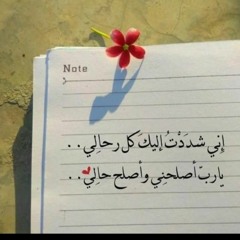 Note
إني شددْتُ إليكَ كل رحالي..
ياربّ أصلحنِي وأصلح حالِي..